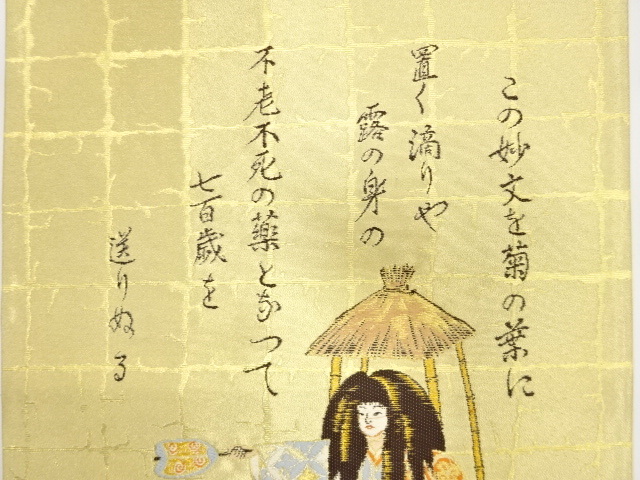 この妙文を菊の葉に
置く滴りや
露の身の
不老不死の薬となつて
七百歳を
送りぬる